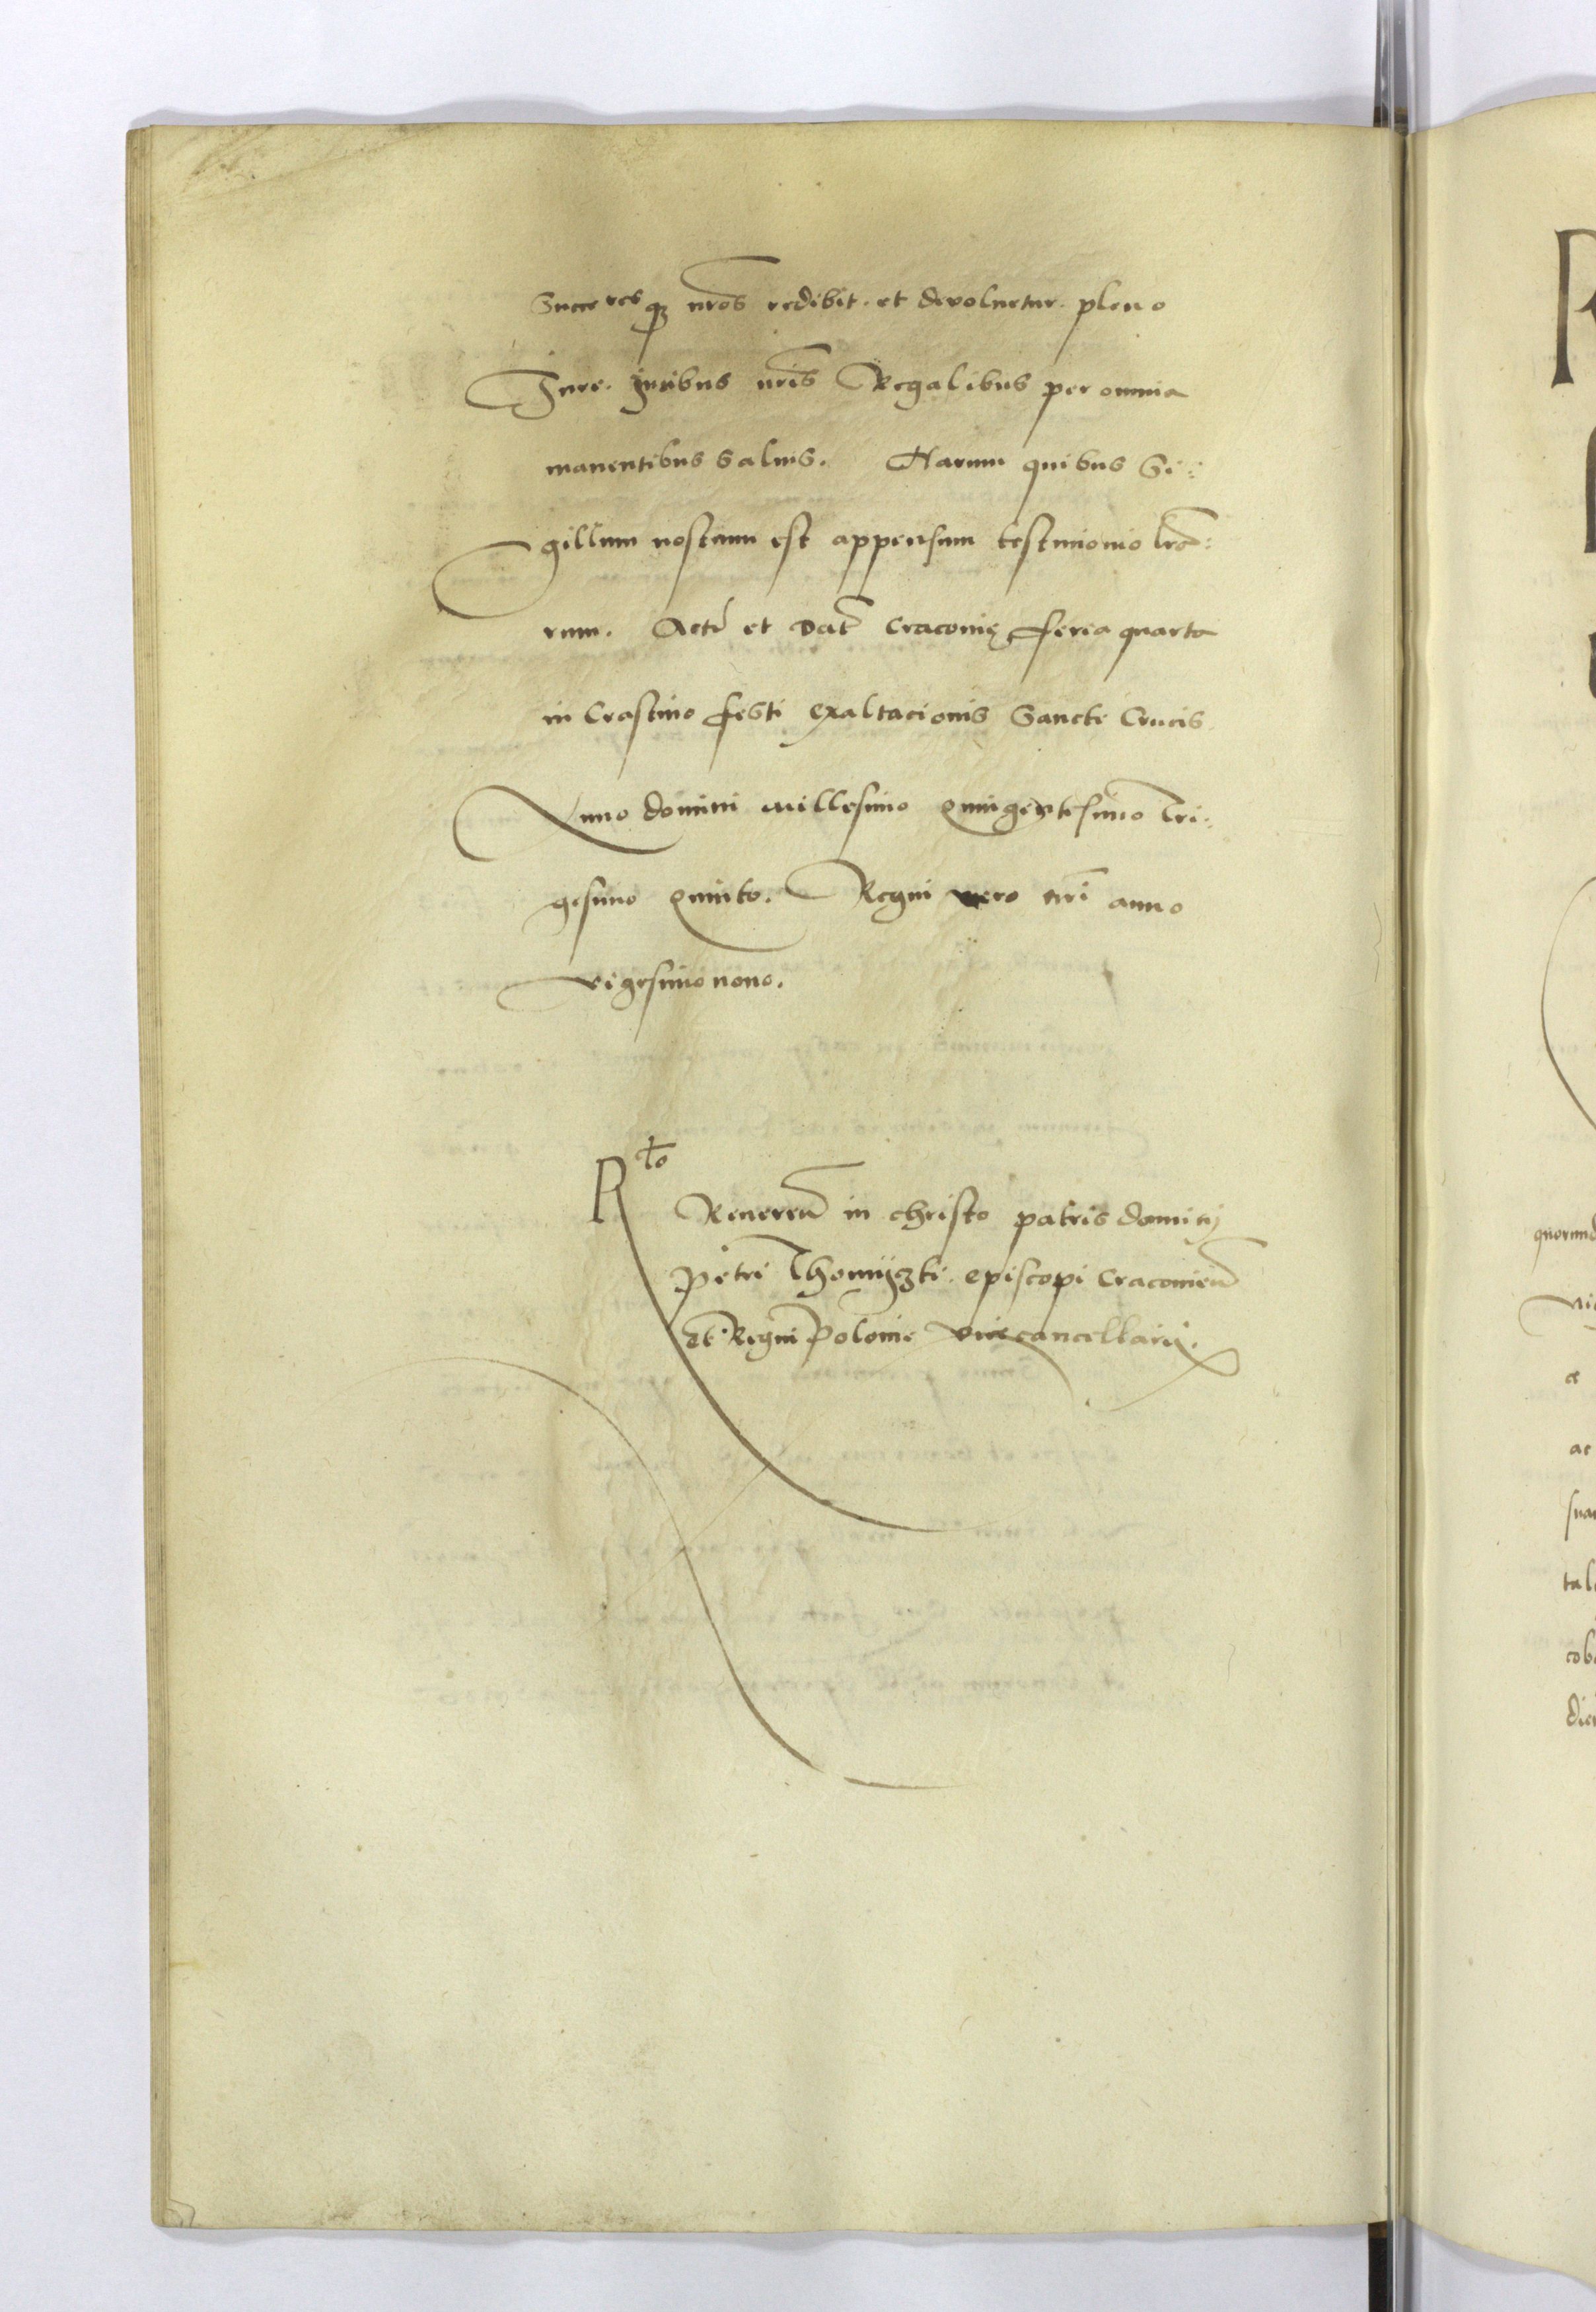 Succeres q₃ nros redibit. et devoluetur. pleno
Jure. Juribus nris Regalibus per omnia
manentibus saluis. Harum quibus Si:
gillum nostrum est appensum testimonio lra:
rum. Act et Dat Cracovię feria quarta
in Crastino festi exaltacionis Sancte Crucis
Anno domini millesimo quingentesimo Tri:
gesimo quinto. Regni vero nri anno
vigesimo nono.
Rto
Reveren in christo patris domini
Petri Thomyczki episcopi Cracovien
et Regni Polonie vicecancellarij.
ac
tal